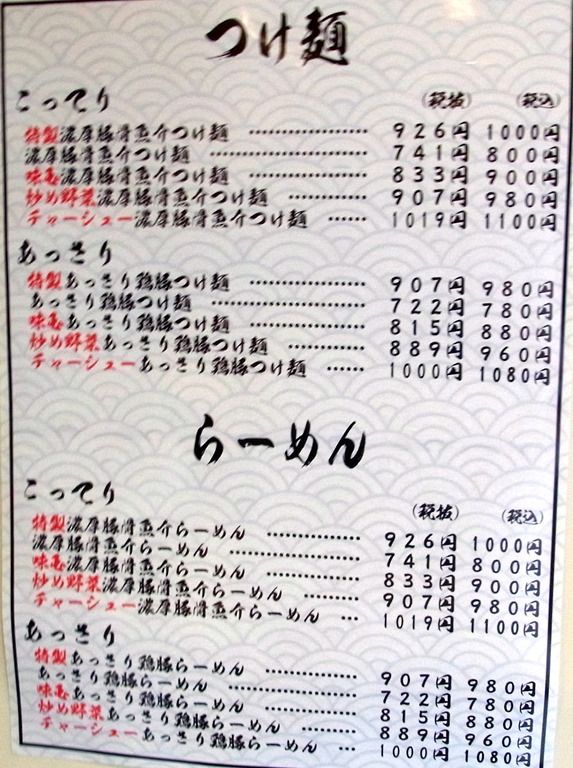 つけ麺
こってり (税抜) (税込)
特製濃厚豚骨魚介つけ麺 ……………… 926円 1000円
濃厚豚骨魚介つけ麺 ……………… 741円 800円
味玉濃厚豚骨魚介つけ麺 ……………… 833円 900円
炒め野菜濃厚豚骨魚介つけ麺 ………… 907円 980円
チャーシュー濃厚豚骨魚介つけ麺 …… 1019円 1100円
あっさり
特製あっさり鶏豚つけ麺 ……………… 907円 980円
あっさり鶏豚つけ麺 ……………… 722円 780円
味玉あっさり鶏豚つけ麺 ……………… 815円 880円
炒め野菜あっさり鶏豚つけ麺 ………… 889円 960円
チャーシューあっさり鶏豚つけ麺 …… 1000円 1080円
らーめん
こってり (税抜) (税込)
特製濃厚豚骨魚介らーめん ………… 926円 1000円
濃厚豚骨魚介らーめん ……………… 741円 800円
味玉濃厚豚骨魚介らーめん ………… 833円 900円
炒め野菜濃厚豚骨魚介らーめん …… 907円 980円
チャーシュー濃厚豚骨魚介らーめん … 1019円 1100円
あっさり
特製あっさり鶏豚らーめん ………… 907円 980円
あっさり鶏豚らーめん ……………… 722円 780円
味玉あっさり鶏豚らーめん ………… 815円 880円
炒め野菜あっさり鶏豚らーめん …… 889円 960円
チャーシューあっさり鶏豚らーめん … 1000円 1080円